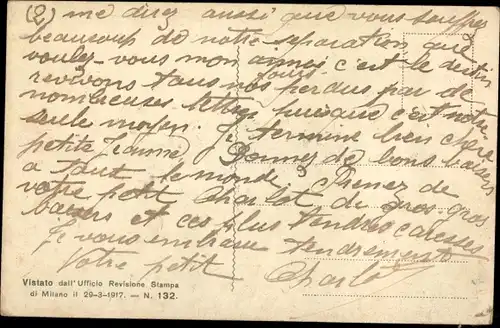 (2) me direz aussi que vous souffrez
beaucoup de notre séparation, que
voulez-vous mon amie c'est le destin
revivons tous nos jours perdus par de
nombreuses lettres puisque c'est notre
seule moyen. Je termine bien chère
petite Jeanne, Donnez de bons baisers
a tout le monde, Prenez de
votre petit Charlot de gros gros
baisers et ces plus tendres caresses
Je vous embrasse tendrement
Votre petit Charlot
Vistato dall'Ufficio Revisione Stampa
di Milano il 29-3-1917. — N. 132.